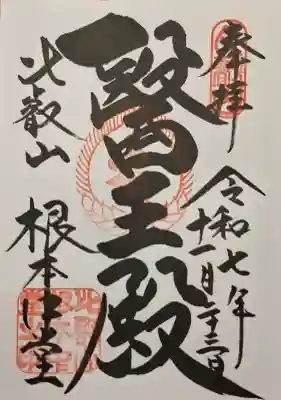 奉拝
令和七年
十一月二十三日
醫王殿
比叡山
根本中堂